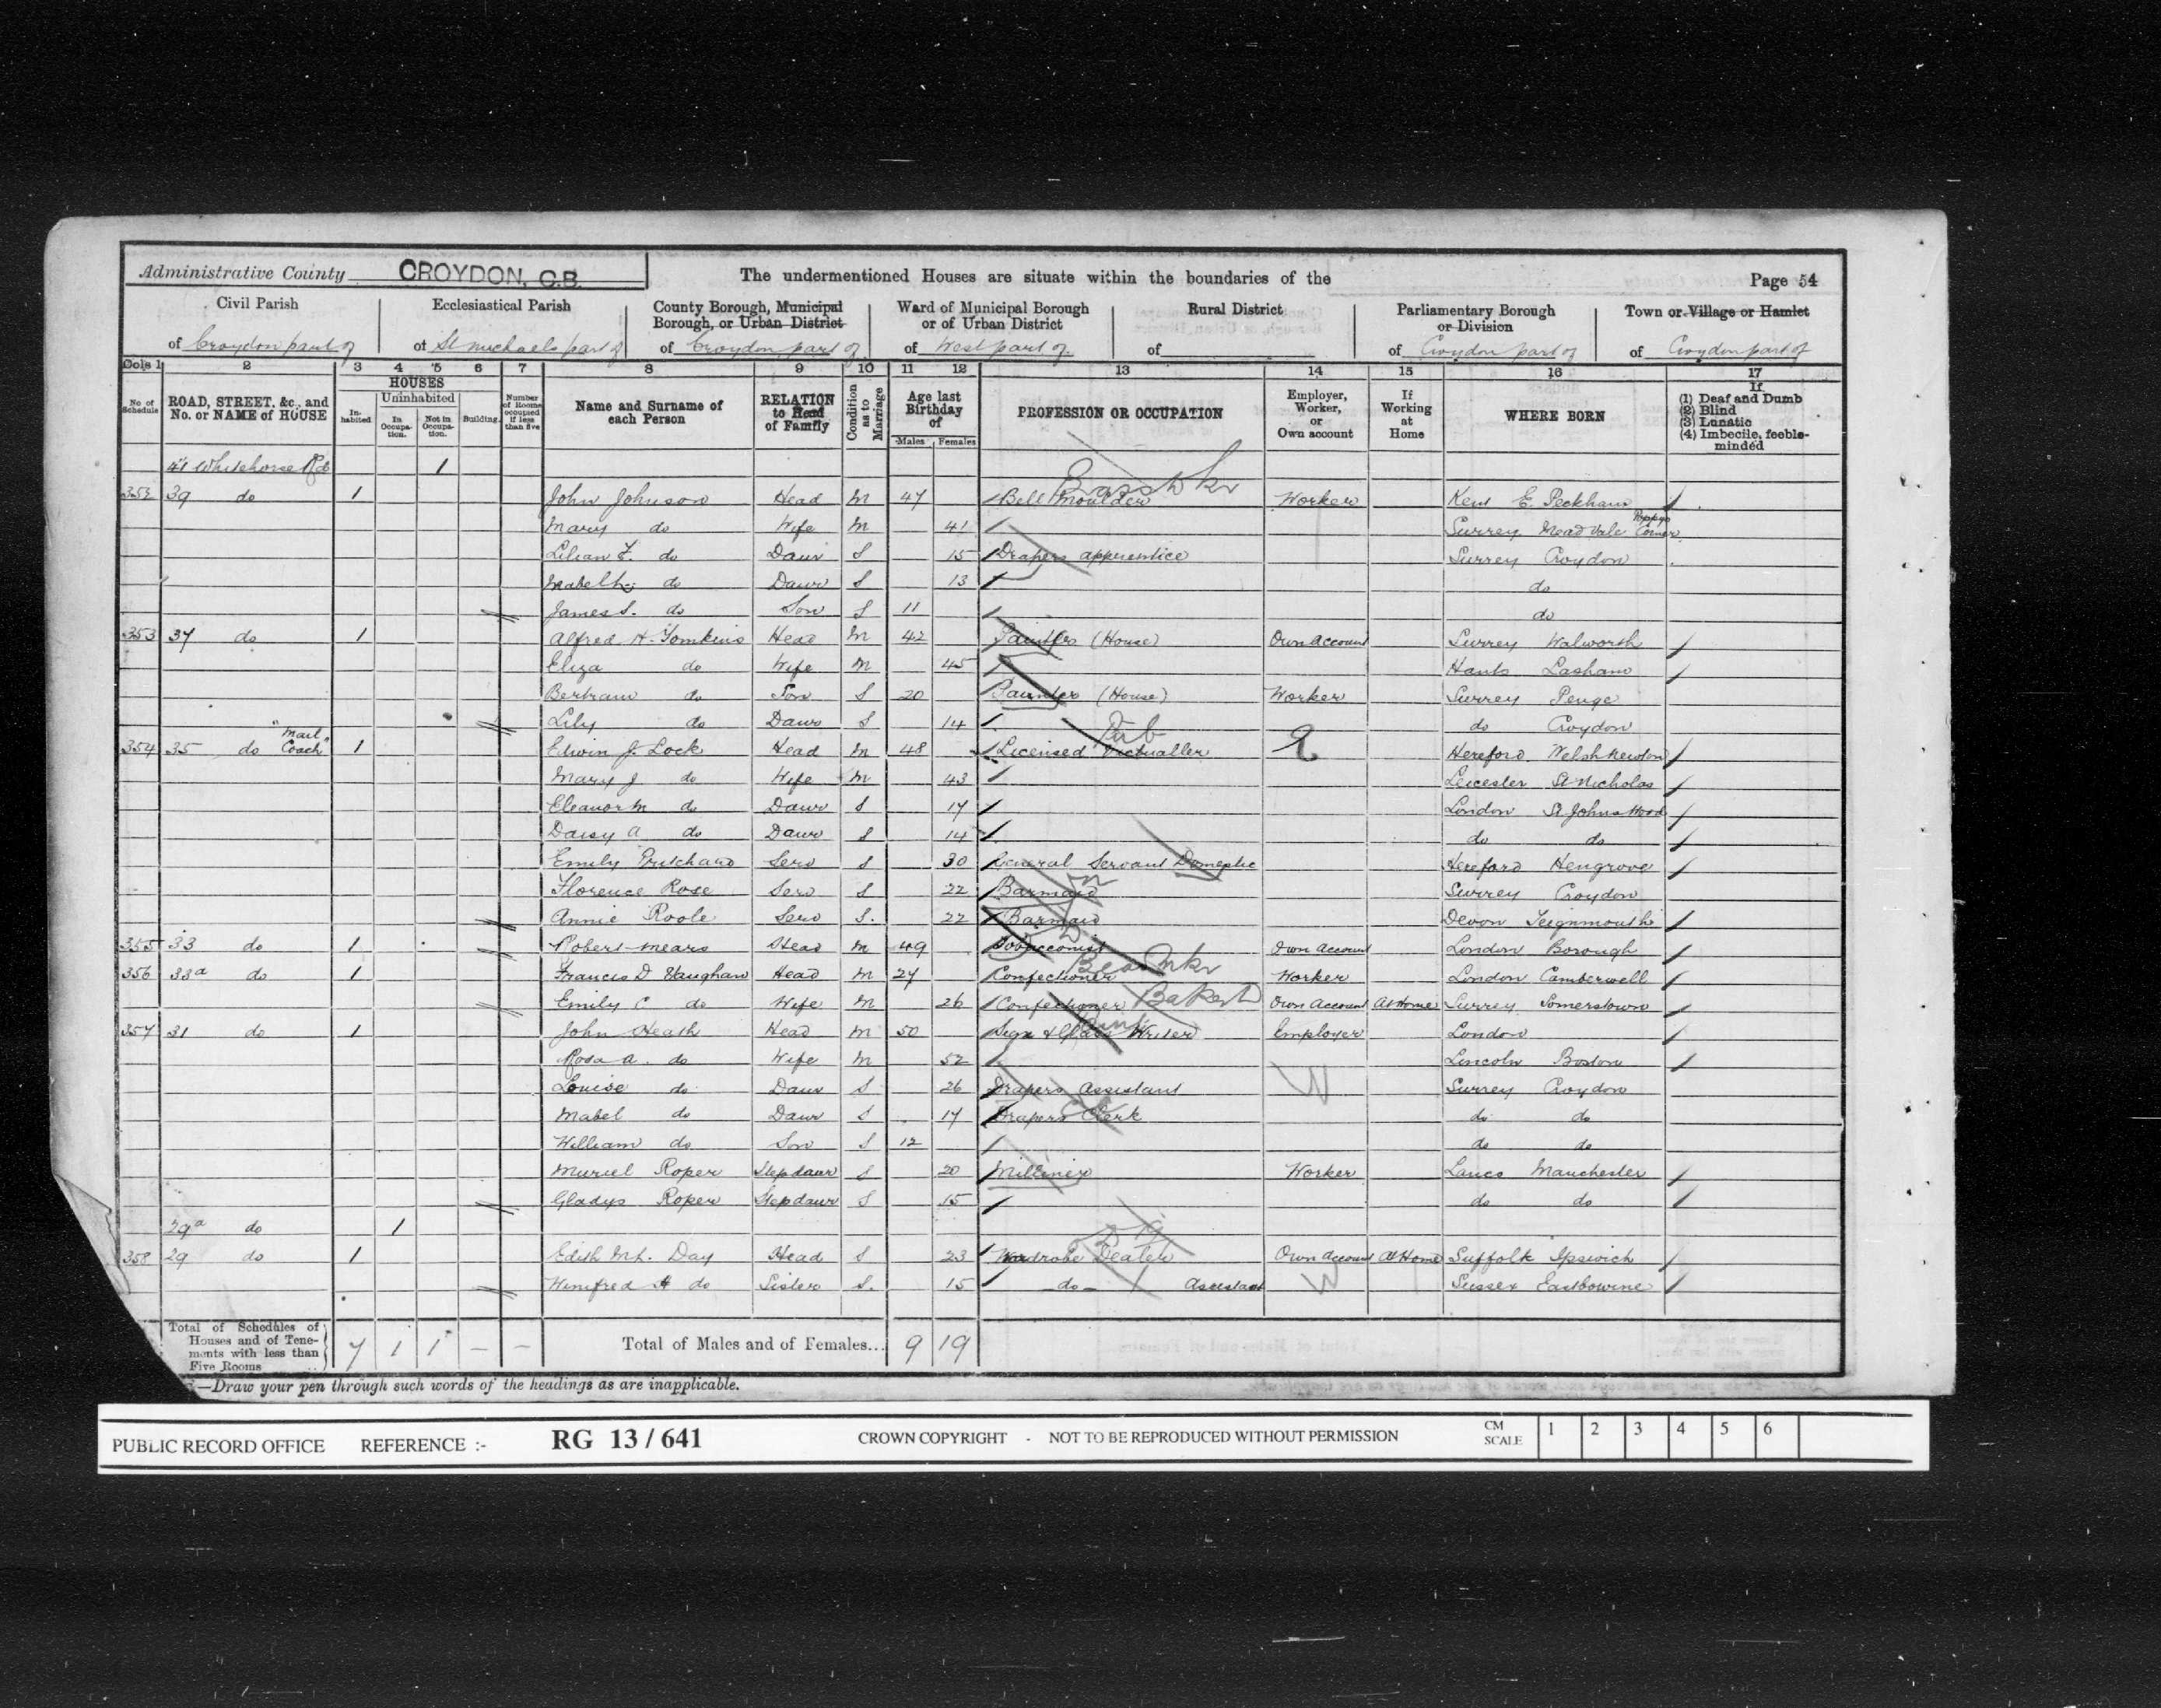 Administrative County CROYDON, C.B. The undermentioned Houses are situate within the boundaries of the Page 54
Civil Parish Ecclesiastical Parish County Borough, Municipal Borough, or Urban District Ward of Municipal Borough or of Urban District Rural District Parliamentary Borough or Division Town or Village or Hamlet
of Croydon part of of St Michaels part of of Croydon part of of West part of of of Croydon part of of Croydon part of
Cols 1 2 3 4 5 6 7 8 9 10 11 12 13 14 15 16 17
No. of Schedule ROAD, STREET, &c., and No. or NAME of HOUSE HOUSES Inhabited Uninhabited In Occupation. Not in Occupation. Building Number of Rooms occupied if less than five Name and Surname of each Person RELATION to Head of Family Condition as to Marriage Age last Birthday of Males Females PROFESSION OR OCCUPATION Employer, Worker, or Own account If Working at Home WHERE BORN If (1) Deaf and Dumb (2) Blind (3) Lunatic (4) Imbecile, feeble-minded
41 Whitehorse Rd 1
352 39 do 1 John Johnson Head M 47 Bell Moulder Worker Kent E. Peckham
Mary do Wife M 41 Surrey Mead Vale Corner
Lilian F. do Daur S 15 Drapers apprentice Surrey Croydon
Mabel do Daur S 13 do
James S. do Son S 11 do
353 37 do 1 Alfred H. Tomkins Head M 42 Painter (House) Own account Surrey Walworth
Eliza do Wife M 45 Hants Lasham
Bertram do Son S 20 Painter (House) Worker Surrey Penge
Lily do Daur S 14 do Croydon
354 35 do "Mail Coach" 1 Edwin J. Lock Head M 48 Licensed Victualler Pub E Hereford Welsh Newton
Mary J do Wife M 43 Leicester St Nicholas
Eleanor M do Daur S 17 London St Johns Wood
Daisy A do Daur S 14 do do
Emily Pritchard Serv S 30 General Servant Domestic Hereford Hengrove
Florence Rose Serv S 22 Barmaid Surrey Croydon
Annie Roole Serv S. 22 Barmaid Devon Teignmouth
355 33 do 1 Robert Mears Head M 49 Tobacconist Own account London Borough
356 33a do 1 Francis D Vaughan Head M 27 Confectioner Worker London Camberwell
Emily C do Wife M 26 Confectioner Baker Own Account At Home Surrey Somerstown
357 31 do 1 John Heath Head M 50 Sign & Glass Writer Employer London
Rosa A. do Wife M 52 Lincoln Boston
Louise do Daur S 26 Drapers Assistant W Surrey Croydon
Mabel do Daur S 17 Drapers Clerk do do
William do Son S 12 do do
Muriel Roper Stepdaur S 20 Milliner Worker Lancs Manchester
Gladys Roper Stepdaur S 15 do do
29a do 1
358 29 do 1 Edith M. Day Head S 23 Wardrobe Dealer Own account At Home Suffolk Ipswich
Winifred A do Sister S. 15 -do- Assistant W Sussex Eastbourne
Total of Schedules of Houses and of Tenements with less than Five Rooms 7 1 1 - - Total of Males and of Females... 9 19
—Draw your pen through such words of the headings as are inapplicable.
PUBLIC RECORD OFFICE REFERENCE :- RG 13 / 641 CROWN COPYRIGHT - NOT TO BE REPRODUCED WITHOUT PERMISSION CM SCALE 1 2 3 4 5 6